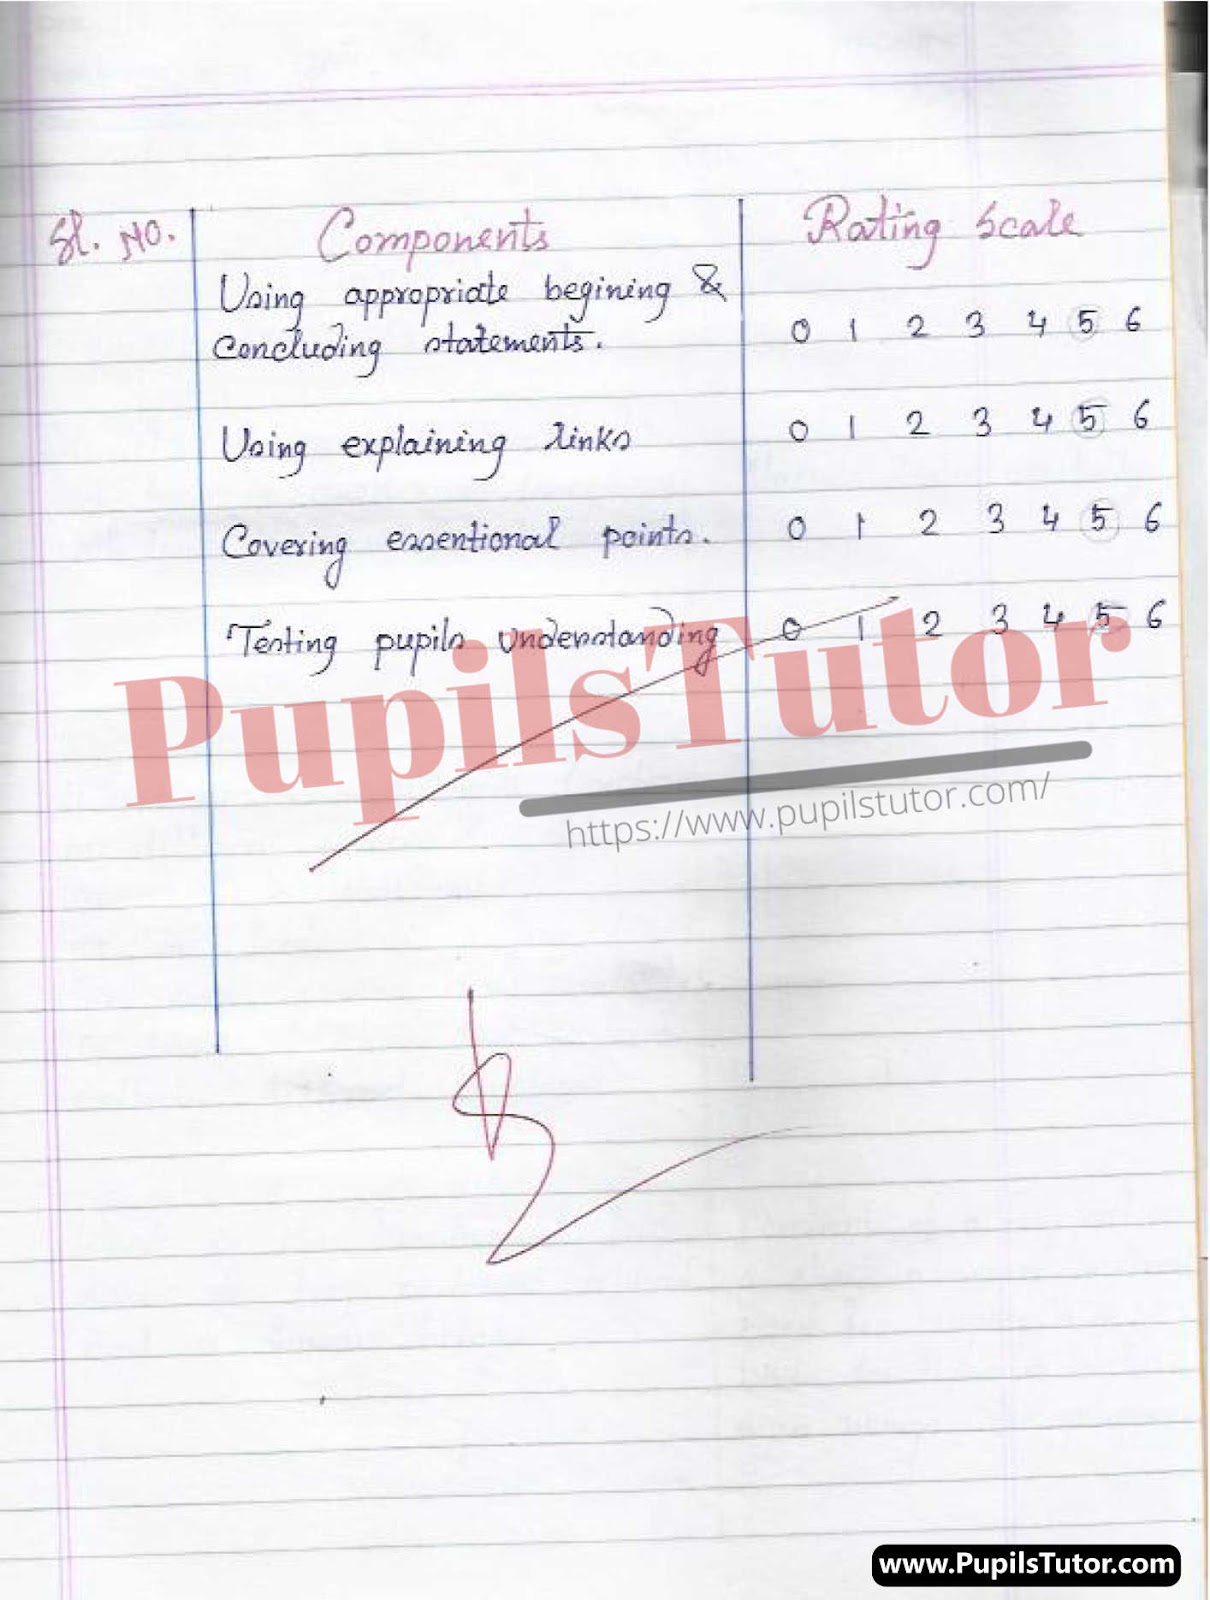 Sl. No. Components Rating Scale
Using appropriate begining &
Concluding statements. 0 1 2 3 4 5 6
Using explaining links 0 1 2 3 4 5 6
Covering essentional points. 0 1 2 3 4 5 6
Testing pupils understanding 0 1 2 3 4 5 6
PupilsTutor
https://www.pupilstutor.com/
www.PupilsTutor.com